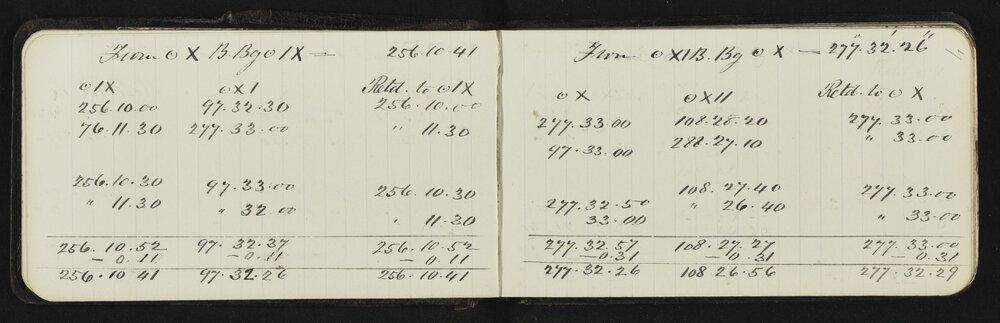 From o X B. Bg o I X — 256.10.41
o I X o X I Retd. to o I X
256.10.00 97.32.30 256.10.00
76.11.30 277.33.00 " 11.30
256.10.30 97.33.00 256.10.30
" 11.30 " 32.00 " 11.30
256.10.52 97.32.37 256.10.52
— 0.11 — 0.11 — 0.11
256.10 41 97.32.26 256.10.41
From o XI B. Bg o X — 277.32'.26"
o X o X II Retd. to o X
277.33.00 108.28.20 277.33.00
97.33.00 288.27.10 " 33.00
108.27.40 277.33.00
277.32.50 " 26.40 " 33.00
33.00
277.32.57 108.27.27 277.33.00
— 0.31 — 0.31 — 0.31
277.32.26 108 26.56 277.32.29